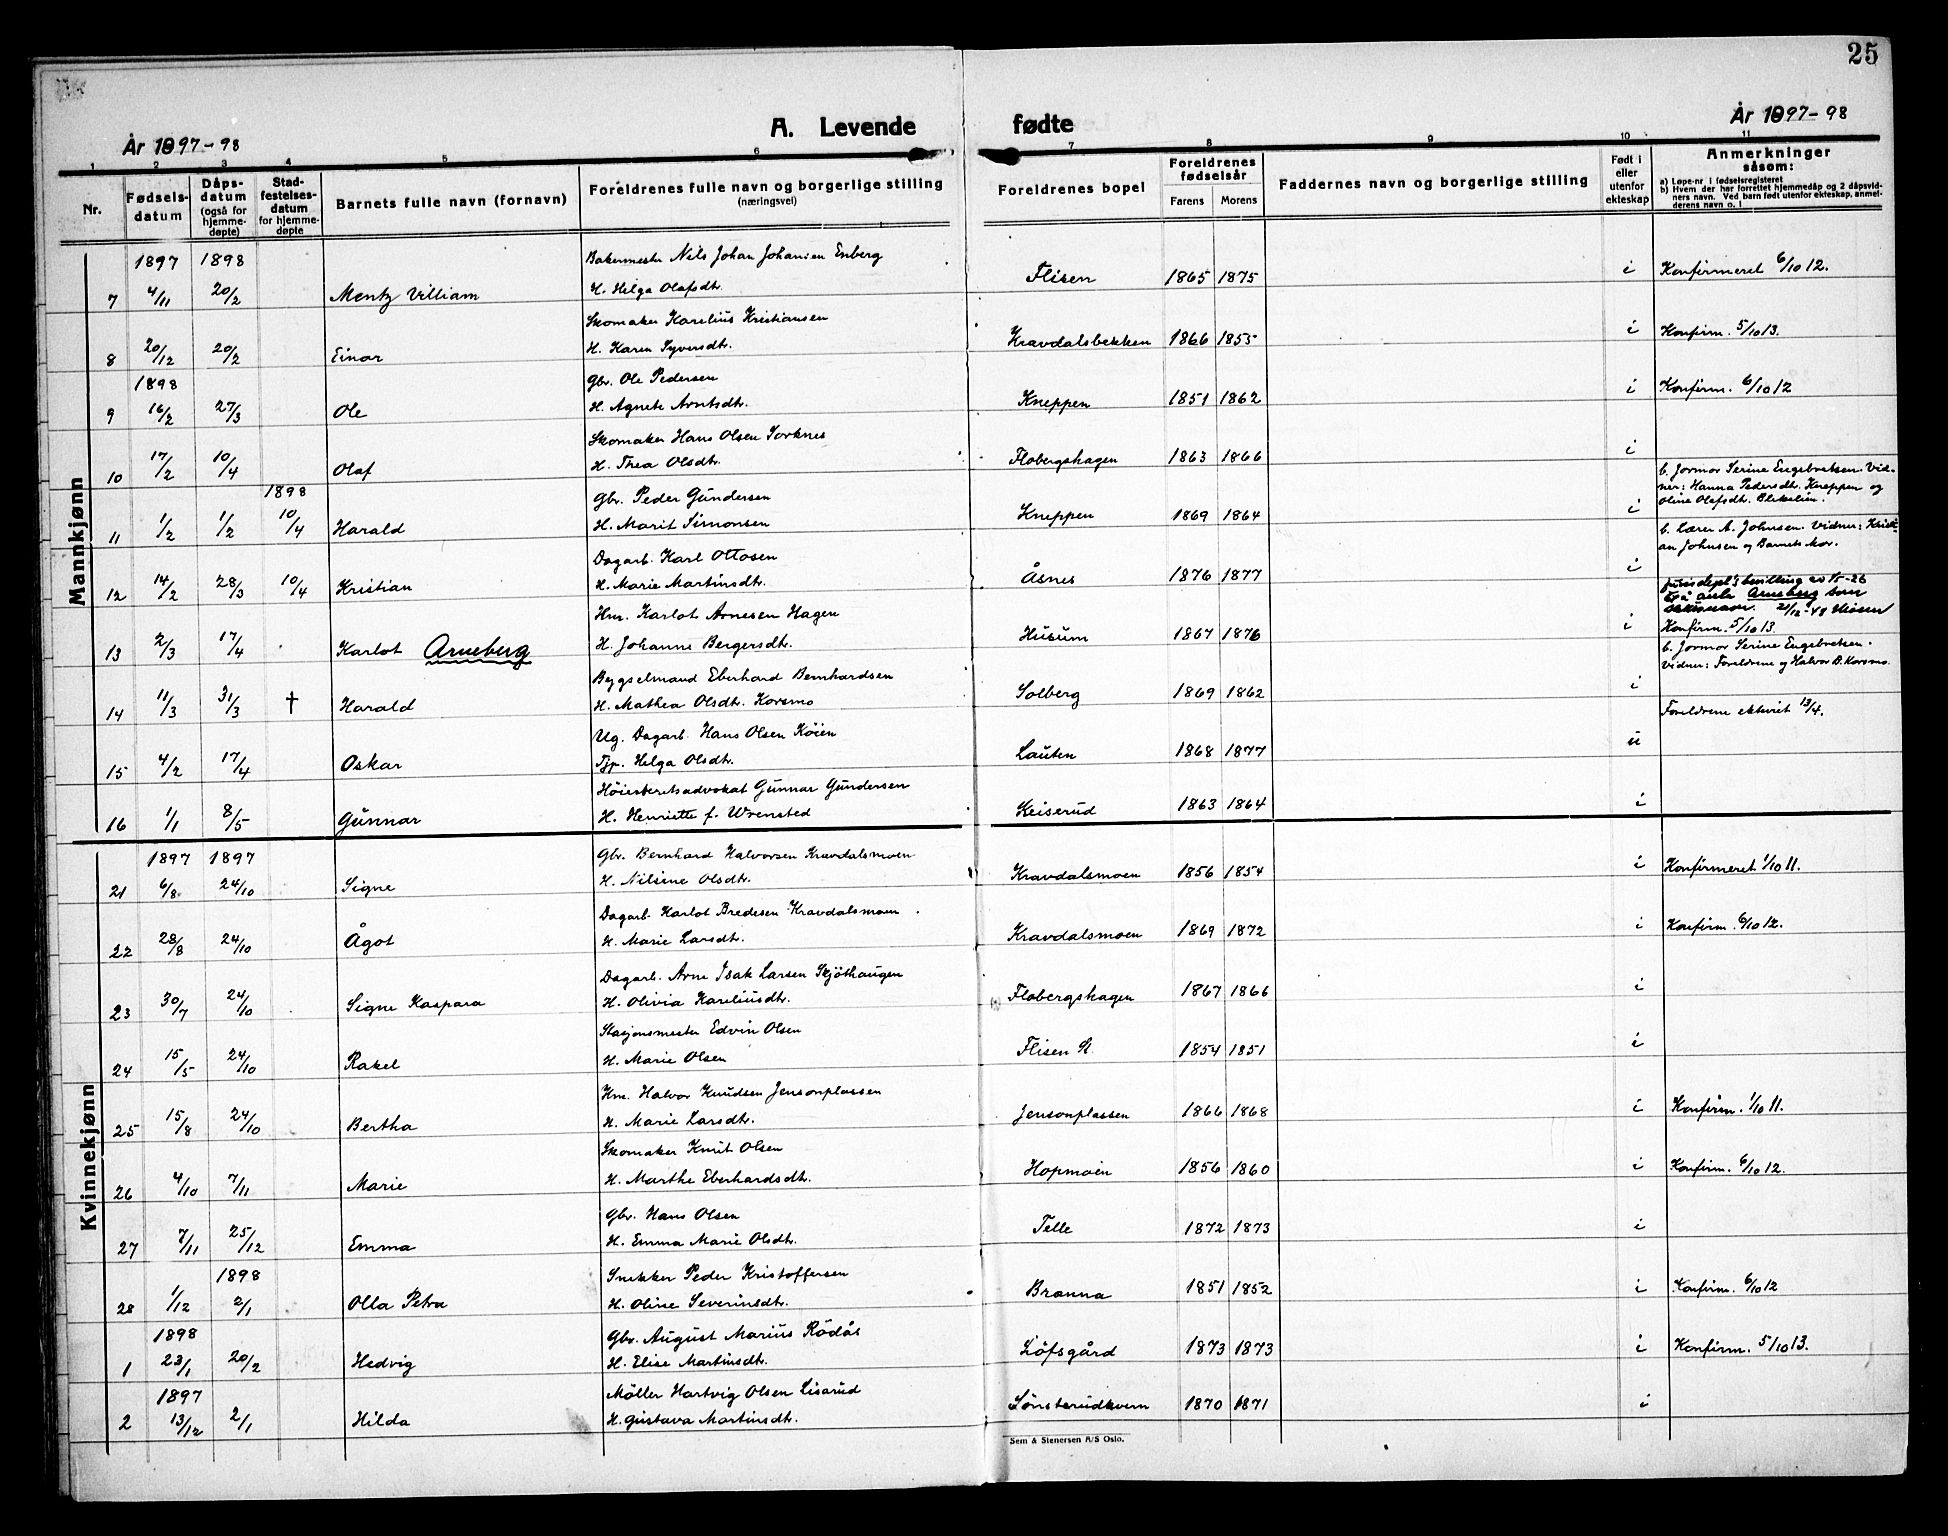 25
A. Levende fødte
År 1897-98
År 1897-98
1 2 3 4 5 6 7 8 9 10 11
Nr.
Fødsels-
datum
Dåps-
datum
(også for
hjemme-
døpte)
Stad-
festelses-
datum
for hjemme-
døpte
Barnets fulle navn (fornavn)
Foreldrenes fulle navn og borgerlige stilling
(næringsvei)
Foreldrenes bopel
Foreldrenes
fødselsår
Farens Morens
Faddernes navn og borgerlige stilling
Født i
eller
utenfor
ekteskap
Anmerkninger
såsom:
a) Løpe-nr i fødselsregisteret
b) Hvem der har forrettet hjemmedåp og 2 dåpsvid-
ners navn. Ved barn født utenfor ekteskap, anmel-
derens navn o. l
Mannkjønn
1897 1898 Bakermester Nils Johan Johansen Enberg
7 4/11 20/2 Mentz Villiam H. Helga Olafsdtr. Flisen 1865 1875 i Konfirmeret 6/10 12.
Skomaker Karelius Kristiansen
8 20/12 20/2 Einar H. Karen Syversdtr. Kravdalsbekken 1866 1855 i Konfirm. 5/10 13.
1898 Gbr. Ole Pedersen
9 16/2 27/3 Ole H. Agnete Arntsdtr. Kneppen 1851 1862 i Konfirm. 6/10 12
Skomaker Hans Olsen Sorknes
10 17/2 10/4 Olaf H. Thea Olsdtr. Flobergshagen 1863 1866 i
1898 Gbr. Peder Gundersen
11 1/2 1/2 10/4 Harald H. Marit Simonsen Kneppen 1869 1864 i b. Jormor Serine Engebretsen. Vid-
ner: Hanna Pedersdtr. Kneppen og
Oline Olafsdtr. Blikelien.
Dagarb. Karl Ottosen
12 14/2 28/3 10/4 Kristian H. Marie Martinsdtr. Åsnes 1876 1877 i b. Lærer A. Johnsen. Vidner: Kristi-
an Johnsen og Barnets Mor.
Hm. Karlot Arnesen Hagen
13 2/3 17/4 Karlot Arneberg H. Johanne Bergersdtr. Husum 1867 1876 i
Arneberg som
Konfirm. 5/10 13.
Bygselmand Eberhard Bernhardsen
14 11/3 31/3 † Harald H. Mathea Olsdtr. Korsmo Solberg 1869 1862 i b. Jormor Serine Engebretsen.
Vidner: Foreldrene og Halvor B. Korsmo.
Ug. Dagarb. Hans Olsen Köien
15 4/2 17/4 Oskar Tjp. Helga Olsdtr. Lauten 1868 1877 u Foreldrene ekteviet 13/4.
Höiesteretsadvokat Gunnar Gundersen
16 1/1 8/5 Gunnar H. Henriette f. Wrensted Keiserud 1863 1864 i
Kvinnekjønn
1897 1897 Gbr. Bernhard Halvorsen Kravdalsmoen
21 6/8 24/10 Signe H. Nilsine Olsdtr. Kravdalsmoen 1856 1854 i Konfirmeret 1/10 11.
Dagarb. Karlot Bredesen Kravdalsmoen
22 28/8 24/10 Ågot H. Marie Larsdtr. Kravdalsmoen 1869 1872 i Konfirm. 6/10 12.
Dagarb. Arne Isak Larsen Skjöthaugen
23 30/7 24/10 Signe Kaspara H. Olivia Kareliusdtr. Flobergshagen 1867 1866 i
Stasjonsmester Edvin Olsen
24 15/5 24/10 Rakel H. Marie Olsen Flisen St. 1854 1851 i
Hm. Halvor Knudsen Jensonplassen
25 15/8 24/10 Bertha H. Marie Larsdtr. Jensonplassen 1866 1868 i Konfirm. 1/10 11.
Skomaker Knut Olsen
26 4/10 7/11 Marie H. Marthe Eberhardsdtr. Hopmoen 1856 1860 i Konfirm. 6/10 12.
Gbr. Hans Olsen
27 7/11 25/12 Emma H. Emma Marie Olsdtr. Telle 1872 1873 i
1898 Snekker Peder Kristoffersen
28 1/12 2/1 Olla Petra H. Oline Severinsdtr. Branna 1851 1852 i Konfirm. 6/10 12
1898 Gbr. August Marius Rödås
1 23/1 20/2 Hedvig H. Elise Martinsdtr. Löfsgård 1873 1873 i Konfirm. 5/10 13.
1897 Möller Hartvig Olsen Lisarud
2 13/12 2/1 Hilda H. Gustava Martinsdtr. Sönsterudkvern 1870 1871 i
Sem & Stenersen A/S Oslo.